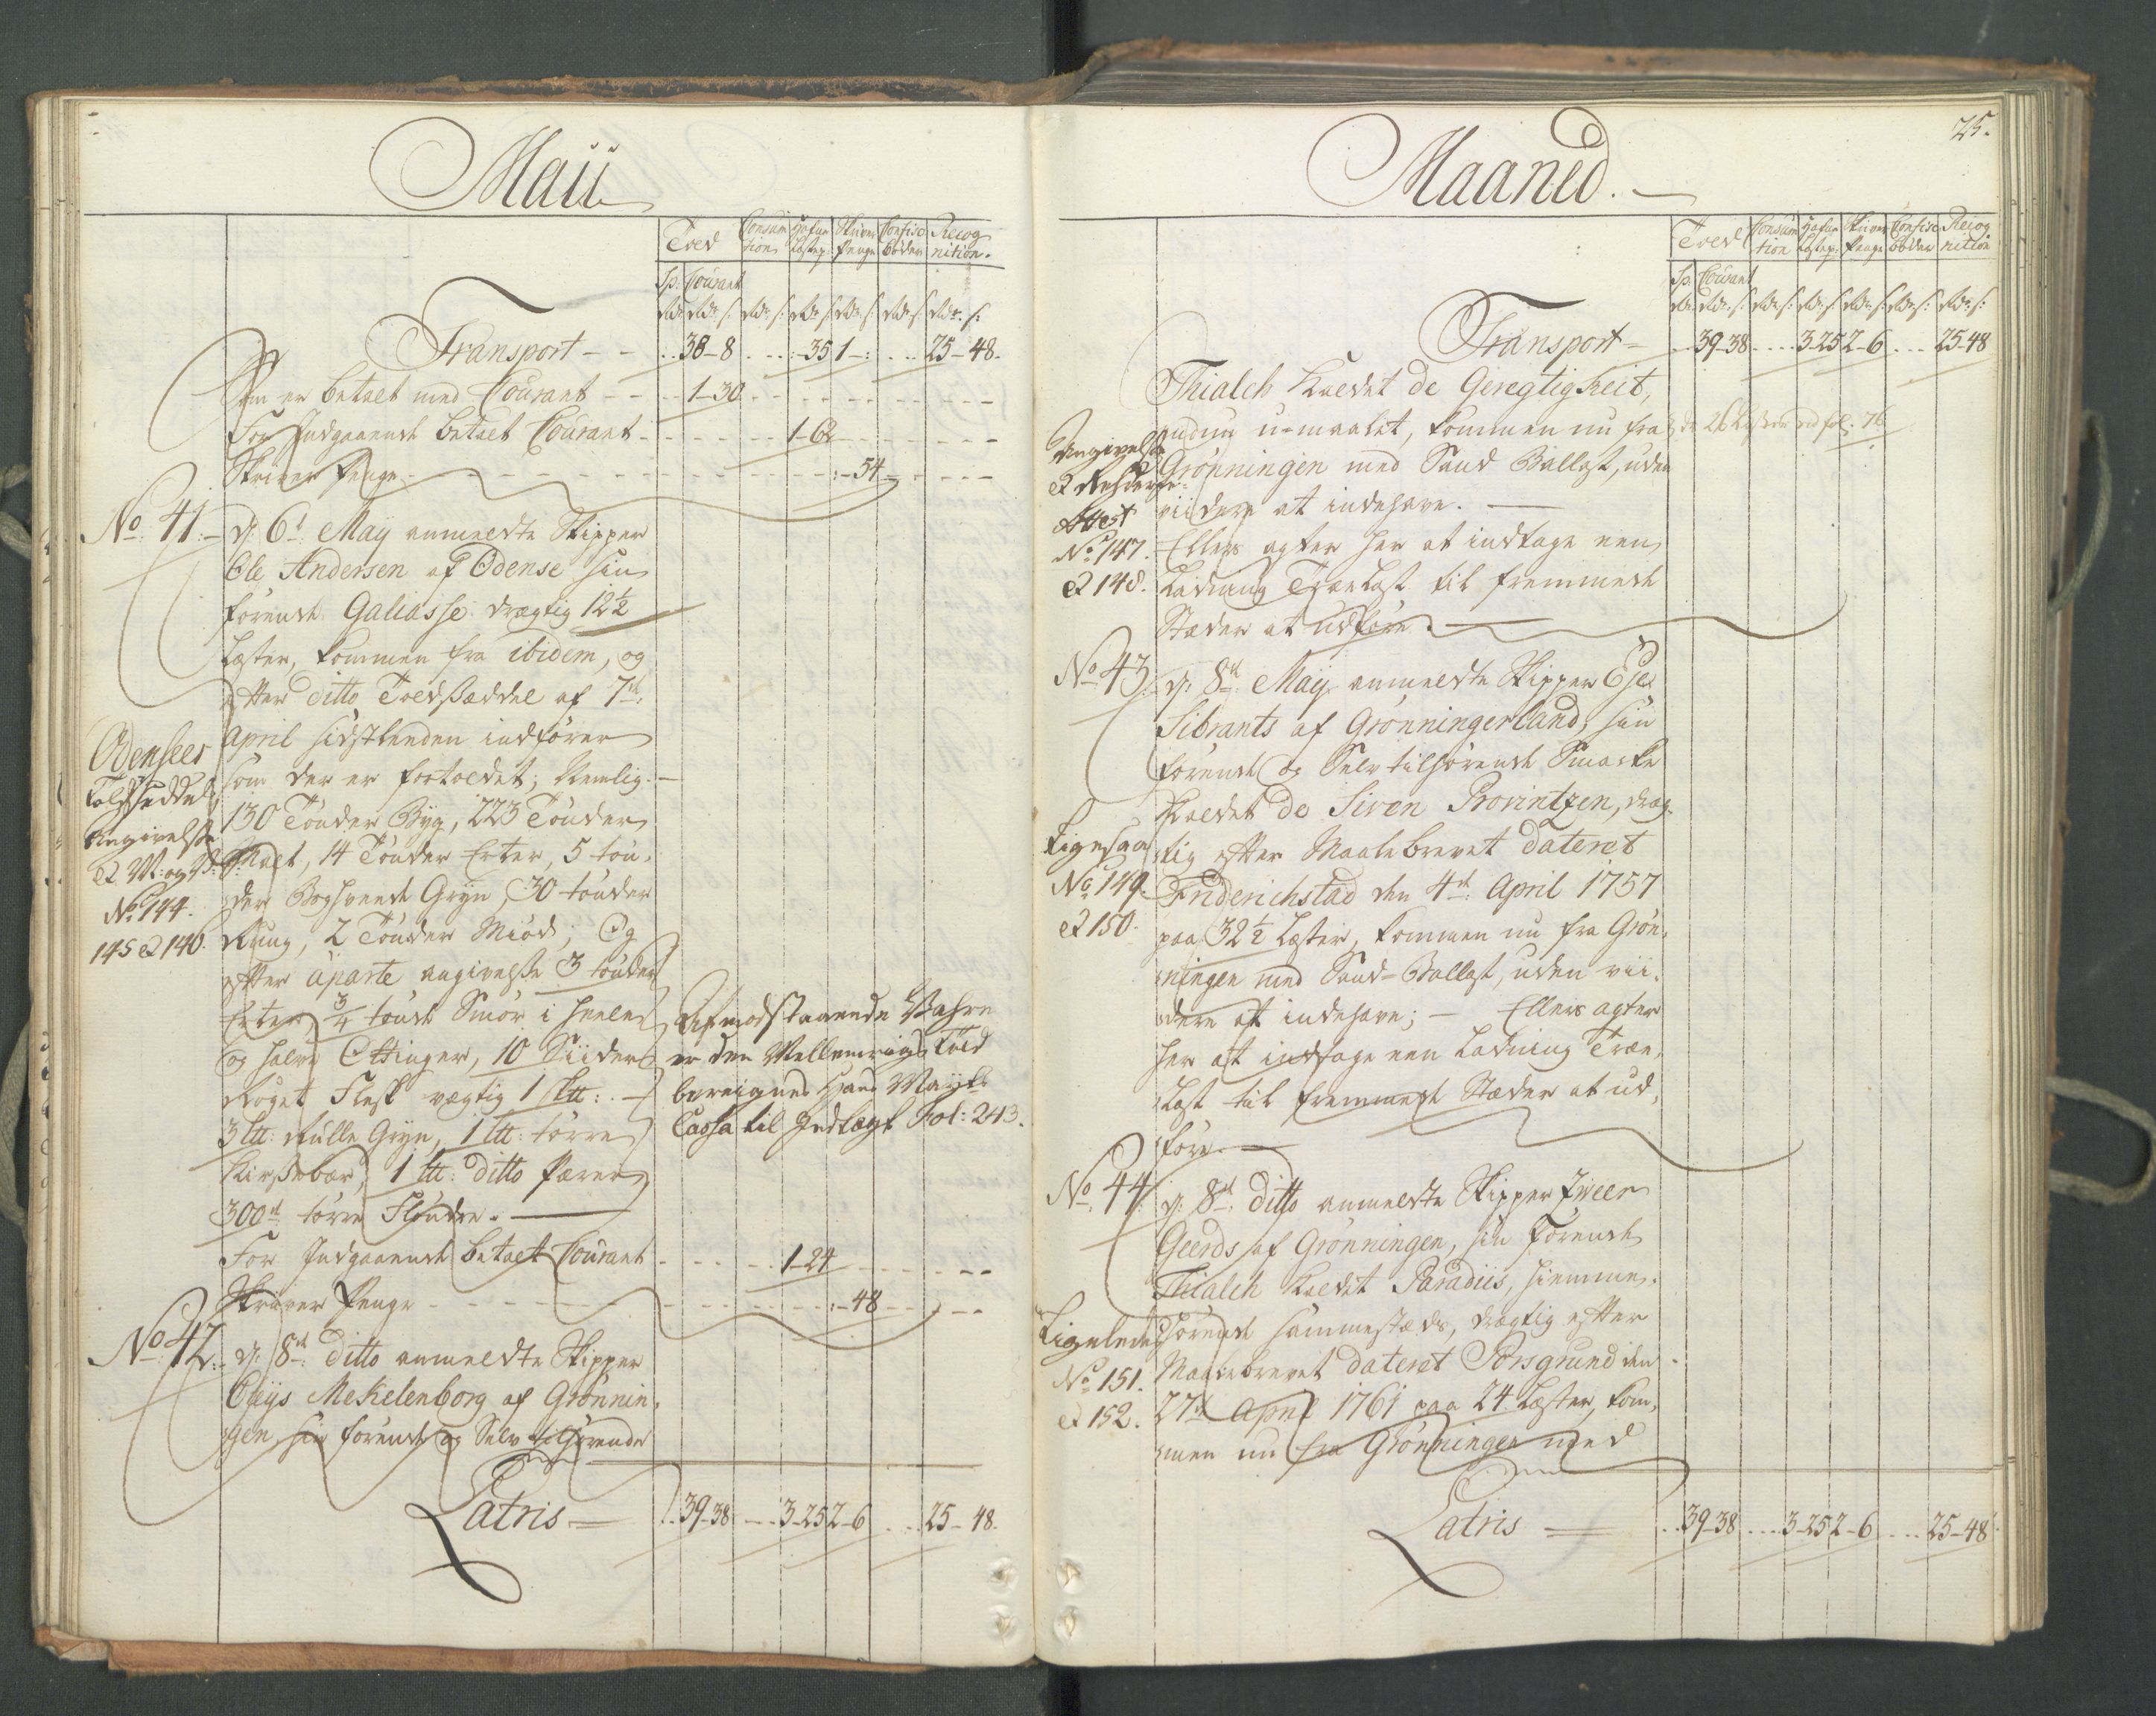 Maii
Told
Consum
tion
Hafne
Lastep:
Skriver
Penge
Confisc
bøder
Recog
nition.
Sp. Courant
Rdr. Rdr. s. Rdr. s. Rdr. s. Rdr. s. Rdr. s. Rdr. s:
Transport - - .. 38-8 .... :-35 1-: ... 25-48.
Som er betalt med Courant - - .. 1-30
For Indgaaende betalt Courant - 1-62
Skriver Penge :-54
No: 41.- d: 6t: Maij anmeldte Skipper
Ole Andersen af Odense sin
førende Galiasse drægtig 12½
Læster, kommen fra ibidem, og
efter ditto Toldsæddel af 7de:
April sidstleden indfører
som der er fortoldet; Nemlig.-
130 Tønder Byg, 223 Tønder
Malt, 14 Tønder Erter, 5 tøn-
der Boghvede Gryn, 30 tønder
Rung, 2 Tønder Miød; Og
efter aparte angivelse 3 tønder
Erter, ¾ tønde Smør i heele
og halve Ottinger, 10 Siider
Røget Flesk vægtig 1 Sktt: -
3 Ltt: Rulle Gryn, 1 Ltt: tørre
Kirsebær, 1 Ltt: ditto Pærer
300de tørre Flyndre. -
Odensees
Toldseddel
Angivelse
& M: og V:
No 144.
145 & 146.
Af modstaaende Vahre
er den Mellemrigs Told
beregned Hans Mayts
Cassa til Indtægt Fol: 243.
For Indgaaende betalt Courant - 1-24
Skriver Penge - :-48
No: 42.- d: 8de: ditto anmeldte Skipper
Meskelenborg af Grønnin-
gen, sin førende og Selv tilhørende
Latris = .. 39-38 ... 3-25 2-6 ... 25-48.
Maaned.
25.
Told
Consum
tion
Hafne
Lastep:
Skriver
Penge
Confisc
bøder
Recog
nition
Sp. Courant
Rdr. Rdr. s. Rdr. s: Rdr. s: Rdr. s: Rdr. s: Rdr. s:
Transport = .. 39-38 .... 3-25 2-6 ... 25-48
Thialch kaldet de Geregtigheit,
endnu u-maalet, kommen nu fra
26 Læster vid fol: 76
Grønningen med Sand Ballast, uden
viidere at indehave. -
Ellers agter her at indtage een
Ladning Træelast til fremmede
Stæder at udføre. -
Angivelse
&
Attest
No: 147.
& 148.
No: 43. d: 8de: Maij anmeldte Skipper Eje
Sibrants af Grønningerland, sin
førende og Selv tilhørende Smakke
kaldet de Siven Provintzen, dræg-
tig efter Maalebrevet dateret
Friderichstad den 4de: April 1757
paa 32½ Læster, kommen nu fra Grøn-
ningen med Sand-Ballast, uden vii-
dere at indehave; - Ellers agter
her at indtage een Ladning Træe-
Last til fremmede Stæder at ud-
føre. -
Ligesaa
No: 149.
& 150.
No: 44. d: 8de: ditto anmeldte Skipper
Geerds af Grønningen, sin førende
Thialch kaldet Paradiis, hiemme-
hørende sammestæds, drægtig efter
Maalebrevet dateret Porsgrund den
27de April 1761 paa 24 Læster, kom-
men nu fra Grønningen med
Ligeledes
No: 151.
& 152.
Latris = .. 39-38 .... 3-25 2-6 .... 25-48